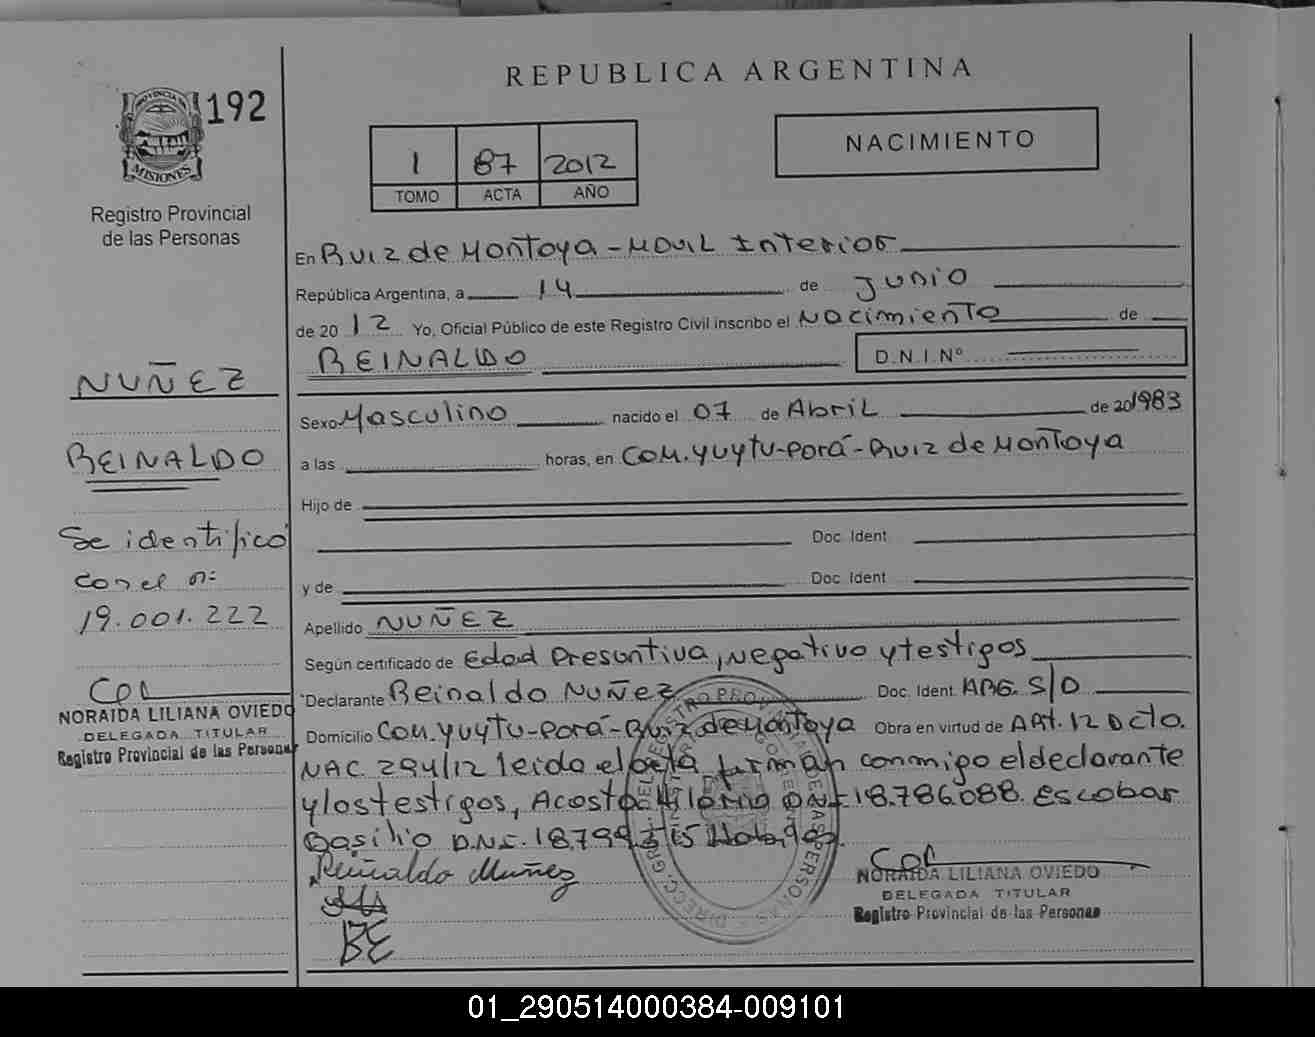 REPUBLICA ARGENTINA
PROVINCIA DE
MISIONES
192
Registro Provincial
de las Personas
1 87 2012
TOMO ACTA AÑO
NACIMIENTO
En Ruiz de Montoya - Movil Interior
República Argentina, a 14 de Junio
de 2012 Yo, Oficial Público de este Registro Civil inscribo el Nacimiento de
REINALDO D.N.I.Nº
Sexo Masculino nacido el 07 de Abril de 201983
a las horas, en Com. Yuytu-Porá - Ruiz de Montoya
Hijo de
Doc. Ident
y de Doc. Ident
Apellido NUÑEZ
Según certificado de Edad Presuntiva, Negativo y testigos
Declarante Reinaldo NUÑEZ Doc. Ident. ARG. S/D
Domicilio Com. Yuytu-Porá - Ruiz de Montoya Obra en virtud de ART. 12 Dcto.
NAC. 294/12 leido el acta, firman conmigo el declarante
y los testigos, Acosta Hilario DNI 18.786.088. Escobar
Basilio D.N.I.
Reinaldo Nuñez
BE
NORAIDA LILIANA OVIEDO
DELEGADA TITULAR
Registro Provincial de las Personas
NUÑEZ
REINALDO
Se identifico
con el nº
19.001.222
NORAIDA LILIANA OVIEDO
DELEGADA TITULAR
Registro Provincial de las Personas
01_290514000384-009101